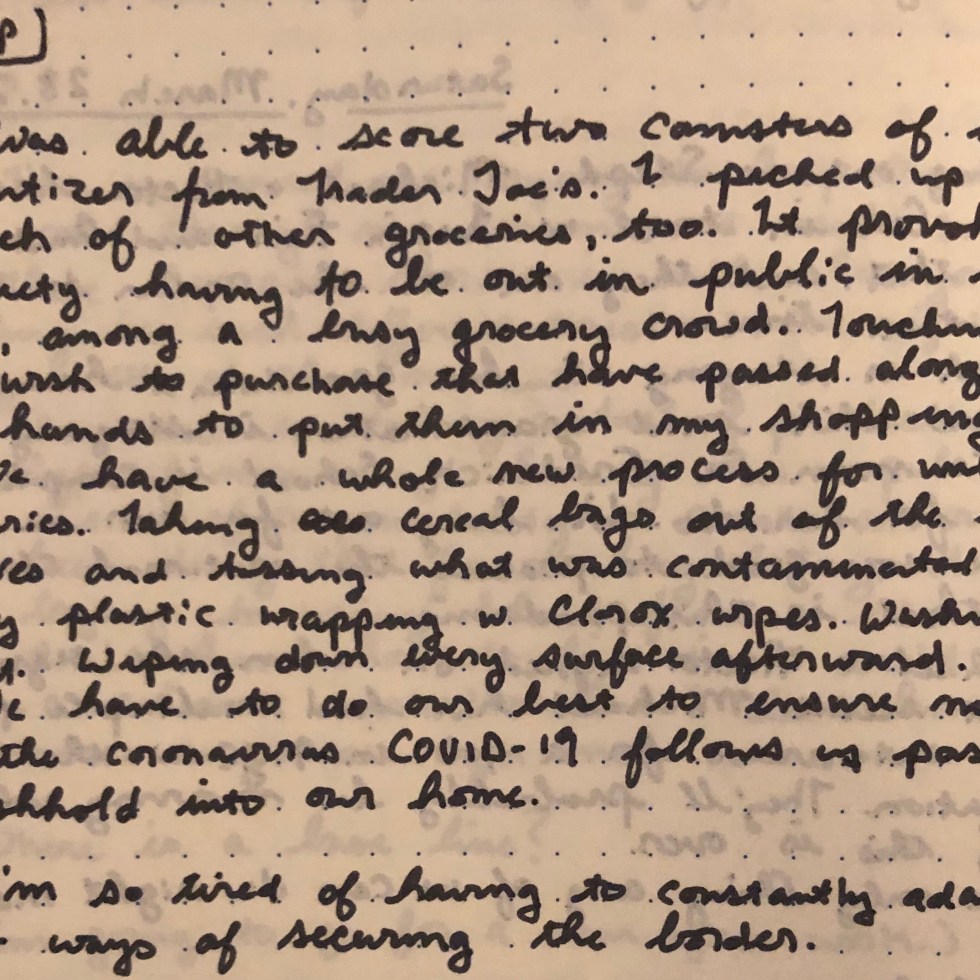 p]
Saturday, March 28
was able to score two canisters of
ntizer from Trader Joe's. I picked up
ch of other groceries, too. It provok
iety having to be out in public in
, among a busy grocery crowd. Touchin
wish to purchase that have passed along
hands to put them in my shopping
We have a whole new process for un
ries. Taking cereal bags out of the
es and tossing what was contaminated
g plastic wrapping w. Clorox wipes. Washi
. Wiping down every surface afterward.
We have to do our best to ensure n
the coronavirus COVID-19 follows us pas
shhold into our home.
'm so tired of having to constantly ada
ways of securing the border.